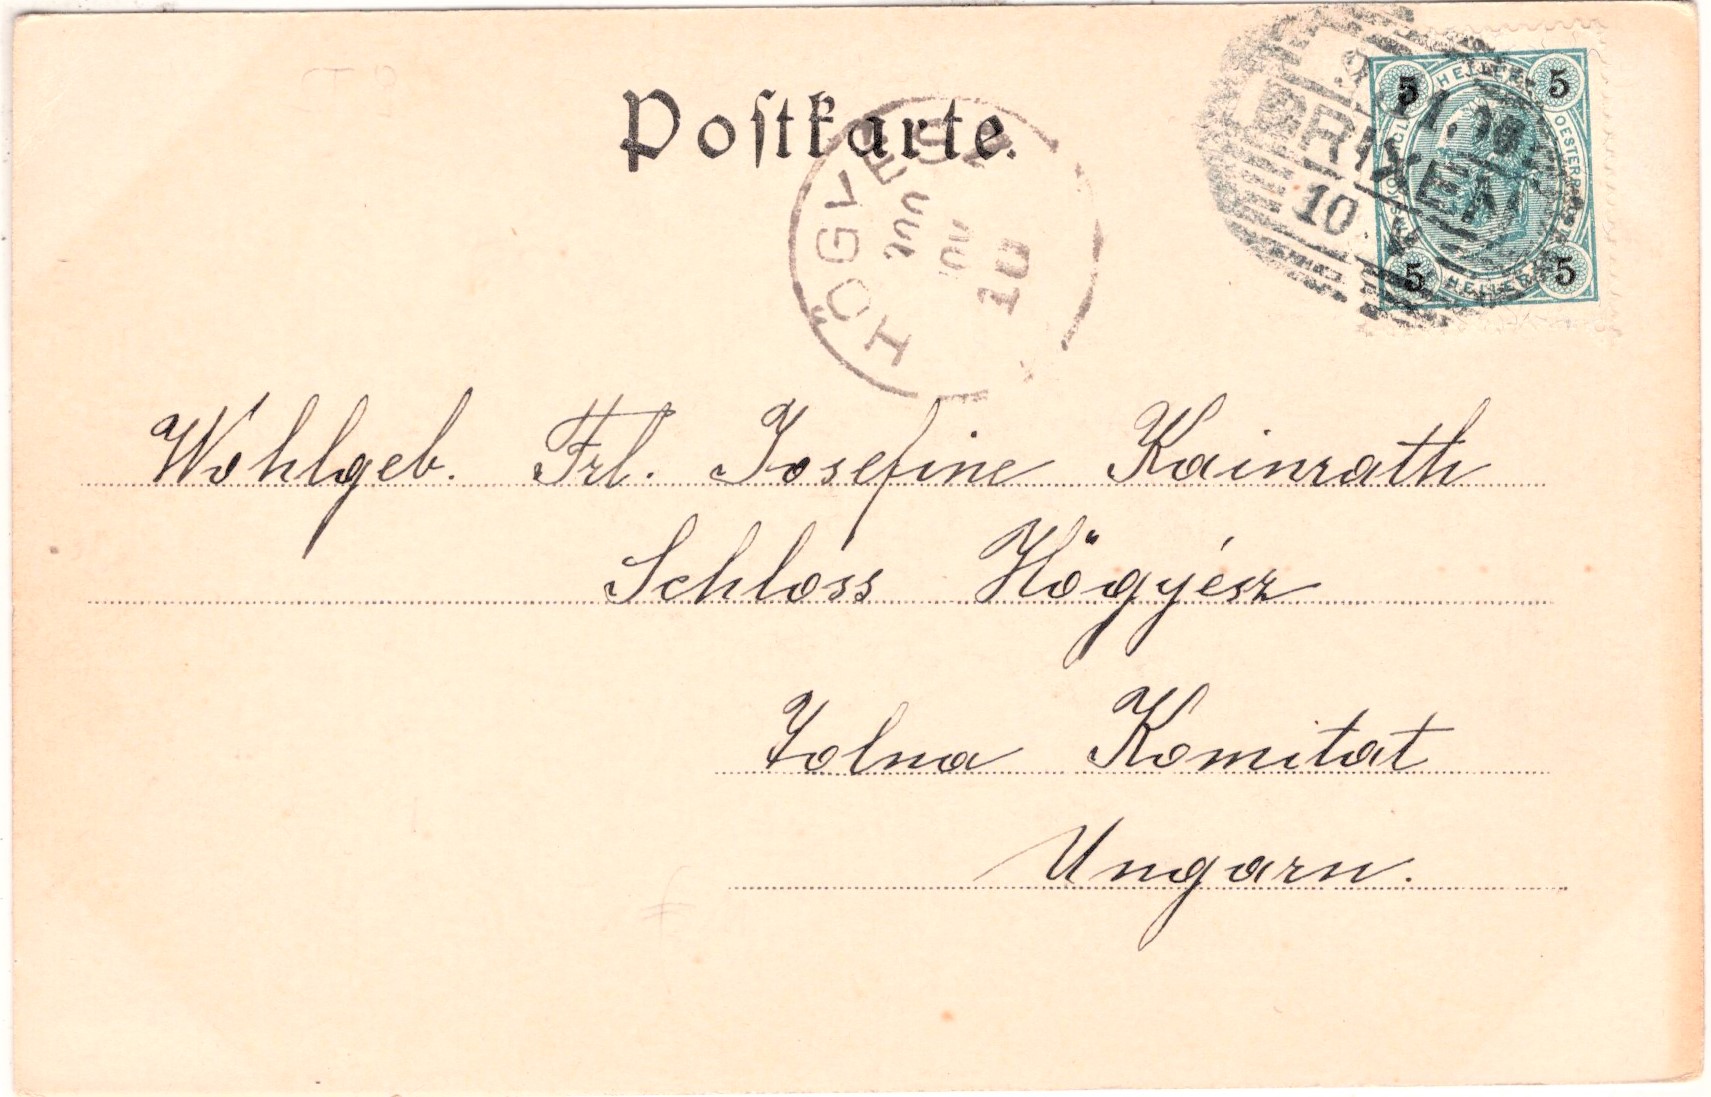 Postkarte.
HŐGYÉSZ
900
JUL
10
BRIXEN
10
5 HELLER 5
5 HELLER 5
Wohlgeb. Frl. Josefine Kainrath
Schloss Hőgyész
Tolna Komitat
Ungarn.